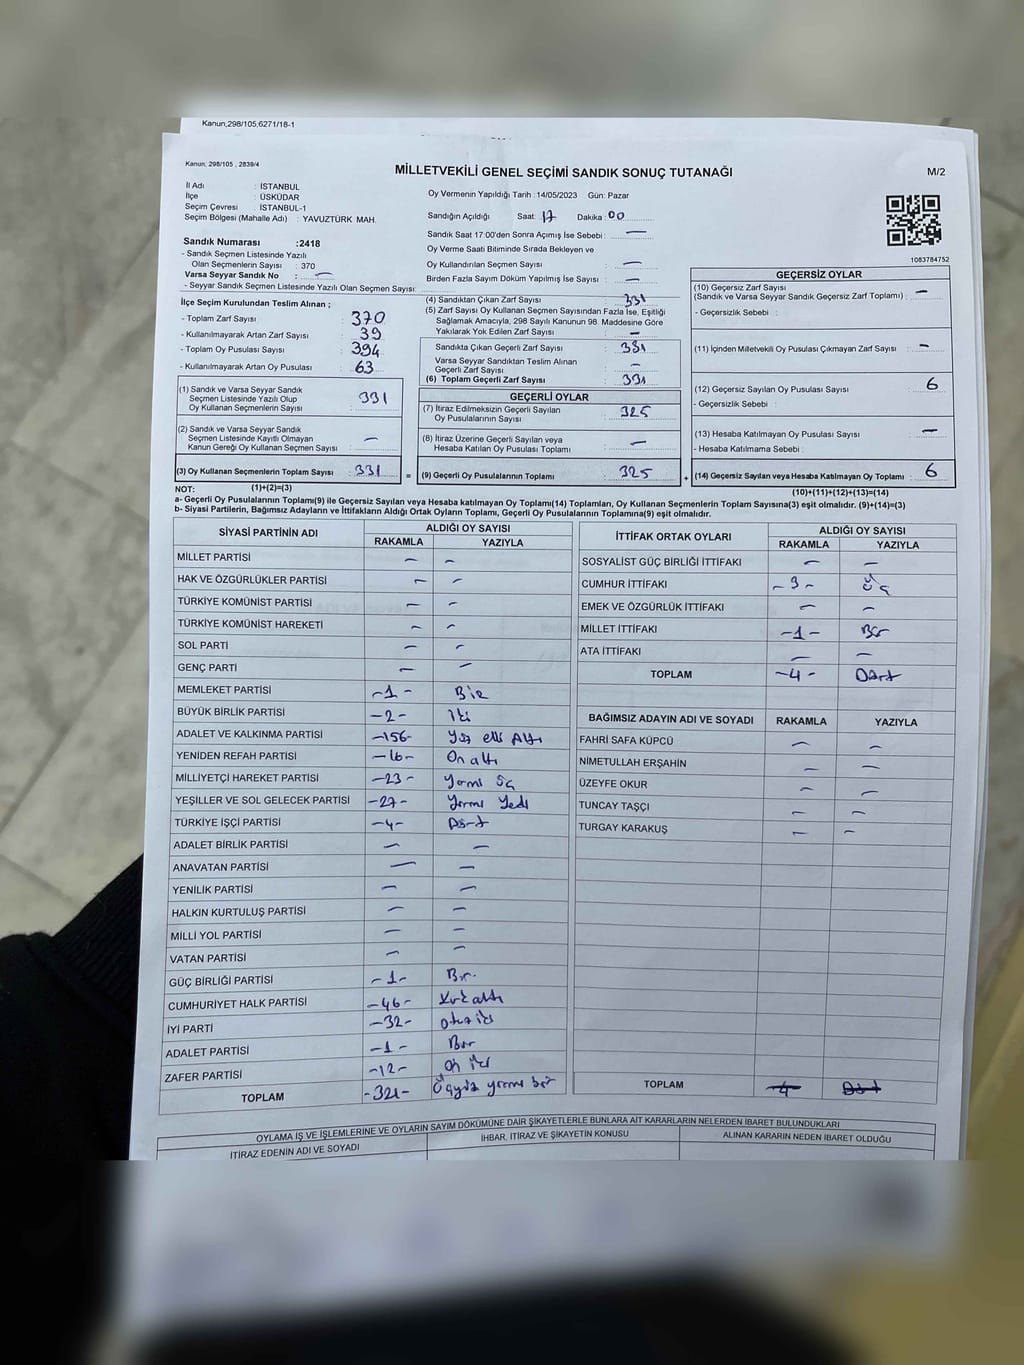 Kanun,298/105,6271/18-1
Kanun, 298/105 , 2839/4
MİLLETVEKİLİ GENEL SEÇİMİ SANDIK SONUÇ TUTANAĞI
M/2
İl Adı : İSTANBUL
İlçe : ÜSKÜDAR
Seçim Çevresi : İSTANBUL-1
Seçim Bölgesi (Mahalle Adı) : YAVUZTÜRK MAH.
Sandık Numarası :2418
- Sandık Seçmen Listesinde Yazılı
Olan Seçmenlerin Sayısı : 370
Varsa Seyyar Sandık No : —
- Seyyar Sandık Seçmen Listesinde Yazılı Olan Seçmen Sayısı:
Oy Vermenin Yapıldığı Tarih : 14/05/2023 Gün: Pazar
Sandığın Açıldığı Saat: 17 Dakika : 00
Sandık Saat 17:00'den Sonra Açımış İse Sebebi : —
Oy Verme Saati Bitiminde Sırada Bekleyen ve
Oy Kullandırılan Seçmen Sayısı : —
Birden Fazla Sayım Döküm Yapılmış İse Sayısı : —
1083784752
İlçe Seçim Kurulundan Teslim Alınan ;
- Toplam Zarf Sayısı : 370
- Kullanılmayarak Artan Zarf Sayısı : 39
- Toplam Oy Pusulası Sayısı : 394
- Kullanılmayarak Artan Oy Pusulası : 63
(1) Sandık ve Varsa Seyyar Sandık
Seçmen Listesinde Yazılı Olup
Oy Kullanan Seçmenlerin Sayısı : 331
(2) Sandık ve Varsa Seyyar Sandık
Seçmen Listesinde Kayıtlı Olmayan
Kanun Gereği Oy Kullanan Seçmen Sayısı : —
(3) Oy Kullanan Seçmenlerin Toplam Sayısı : 331
(1)+(2)=(3)
(4) Sandıktan Çıkan Zarf Sayısı : 331
(5) Zarf Sayısı Oy Kullanan Seçmen Sayısından Fazla İse, Eşitliği
Sağlamak Amacıyla, 298 Sayılı Kanunun 98. Maddesine Göre
Yakılarak Yok Edilen Zarf Sayısı : —
Sandıkta Çıkan Geçerli Zarf Sayısı : 331
Varsa Seyyar Sandıktan Teslim Alınan
Geçerli Zarf Sayısı : —
(6) Toplam Geçerli Zarf Sayısı : 331
GEÇERLİ OYLAR
(7) İtiraz Edilmeksizin Geçerli Sayılan
Oy Pusulalarının Sayısı : 325
(8) İtiraz Üzerine Geçerli Sayılan veya
Hesaba Katılan Oy Pusulası Toplamı : —
= (9) Geçerli Oy Pusulalarının Toplamı : 325 +
GEÇERSİZ OYLAR
(10) Geçersiz Zarf Sayısı
(Sandık ve Varsa Seyyar Sandık Geçersiz Zarf Toplamı) : —
- Geçersizlik Sebebi :
(11) İçinden Milletvekili Oy Pusulası Çıkmayan Zarf Sayısı : —
(12) Geçersiz Sayılan Oy Pusulası Sayısı : 6
- Geçersizlik Sebebi :
(13) Hesaba Katılmayan Oy Pusulası Sayısı : —
- Hesaba Katılmama Sebebi :
(14) Geçersiz Sayılan veya Hesaba Katılmayan Oy Toplamı : 6
(10)+(11)+(12)+(13)=(14)
NOT:
a- Geçerli Oy Pusulalarının Toplamı(9) ile Geçersiz Sayılan veya Hesaba katılmayan Oy Toplamı(14) Toplamları, Oy Kullanan Seçmenlerin Toplam Sayısına(3) eşit olmalıdır. (9)+(14)=(3)
b- Siyasi Partilerin, Bağımsız Adayların ve İttifakların Aldığı Ortak Oyların Toplamı, Geçerli Oy Pusulalarının Toplamına(9) eşit olmalıdır.
SİYASİ PARTİNİN ADI ALDIĞI OY SAYISI
RAKAMLA YAZIYLA
MİLLET PARTİSİ — —
HAK VE ÖZGÜRLÜKLER PARTİSİ — —
TÜRKİYE KOMÜNİST PARTİSİ — —
TÜRKİYE KOMÜNİST HAREKETİ — —
SOL PARTİ — —
GENÇ PARTİ — —
MEMLEKET PARTİSİ -1- Bir
BÜYÜK BİRLİK PARTİSİ -2- İki
ADALET VE KALKINMA PARTİSİ -156- Yüz elli Altı
YENİDEN REFAH PARTİSİ -16- On altı
MİLLİYETÇİ HAREKET PARTİSİ -23- Yirmi Üç
YEŞİLLER VE SOL GELECEK PARTİSİ -27- Yirmi Yedi
TÜRKİYE İŞÇİ PARTİSİ -4- Dört
ADALET BİRLİK PARTİSİ — —
ANAVATAN PARTİSİ — —
YENİLİK PARTİSİ — —
HALKIN KURTULUŞ PARTİSİ — —
MİLLİ YOL PARTİSİ — —
VATAN PARTİSİ — —
GÜÇ BİRLİĞİ PARTİSİ -1- Bir.
CUMHURİYET HALK PARTİSİ -46- Kırk altı
İYİ PARTİ -32- otuz iki
ADALET PARTİSİ -1- Bir
ZAFER PARTİSİ -12- On iki
TOPLAM -321- Üçyüz yirmi bir
İTTİFAK ORTAK OYLARI ALDIĞI OY SAYISI
RAKAMLA YAZIYLA
SOSYALİST GÜÇ BİRLİĞİ İTTİFAKI — —
CUMHUR İTTİFAKI -3- Üç
EMEK VE ÖZGÜRLÜK İTTİFAKI — —
MİLLET İTTİFAKI -1- Bir
ATA İTTİFAKI — —
TOPLAM -4- Dört
BAĞIMSIZ ADAYIN ADI VE SOYADI RAKAMLA YAZIYLA
FAHRİ SAFA KÜPCÜ — —
NİMETULLAH ERŞAHİN — —
ÜZEYFE OKUR — —
TUNCAY TAŞÇI — —
TURGAY KARAKUŞ — —
TOPLAM 4 Dört
OYLAMA İŞ VE İŞLEMLERİNE VE OYLARIN SAYIM DÖKÜMÜNE DAİR ŞİKAYETLERLE BUNLARA AİT KARARLARIN NELERDEN İBARET BULUNDUKLARI
İTİRAZ EDENİN ADI VE SOYADI İHBAR, İTİRAZ VE ŞİKAYETİN KONUSU ALINAN KARARIN NEDEN İBARET OLDUĞU